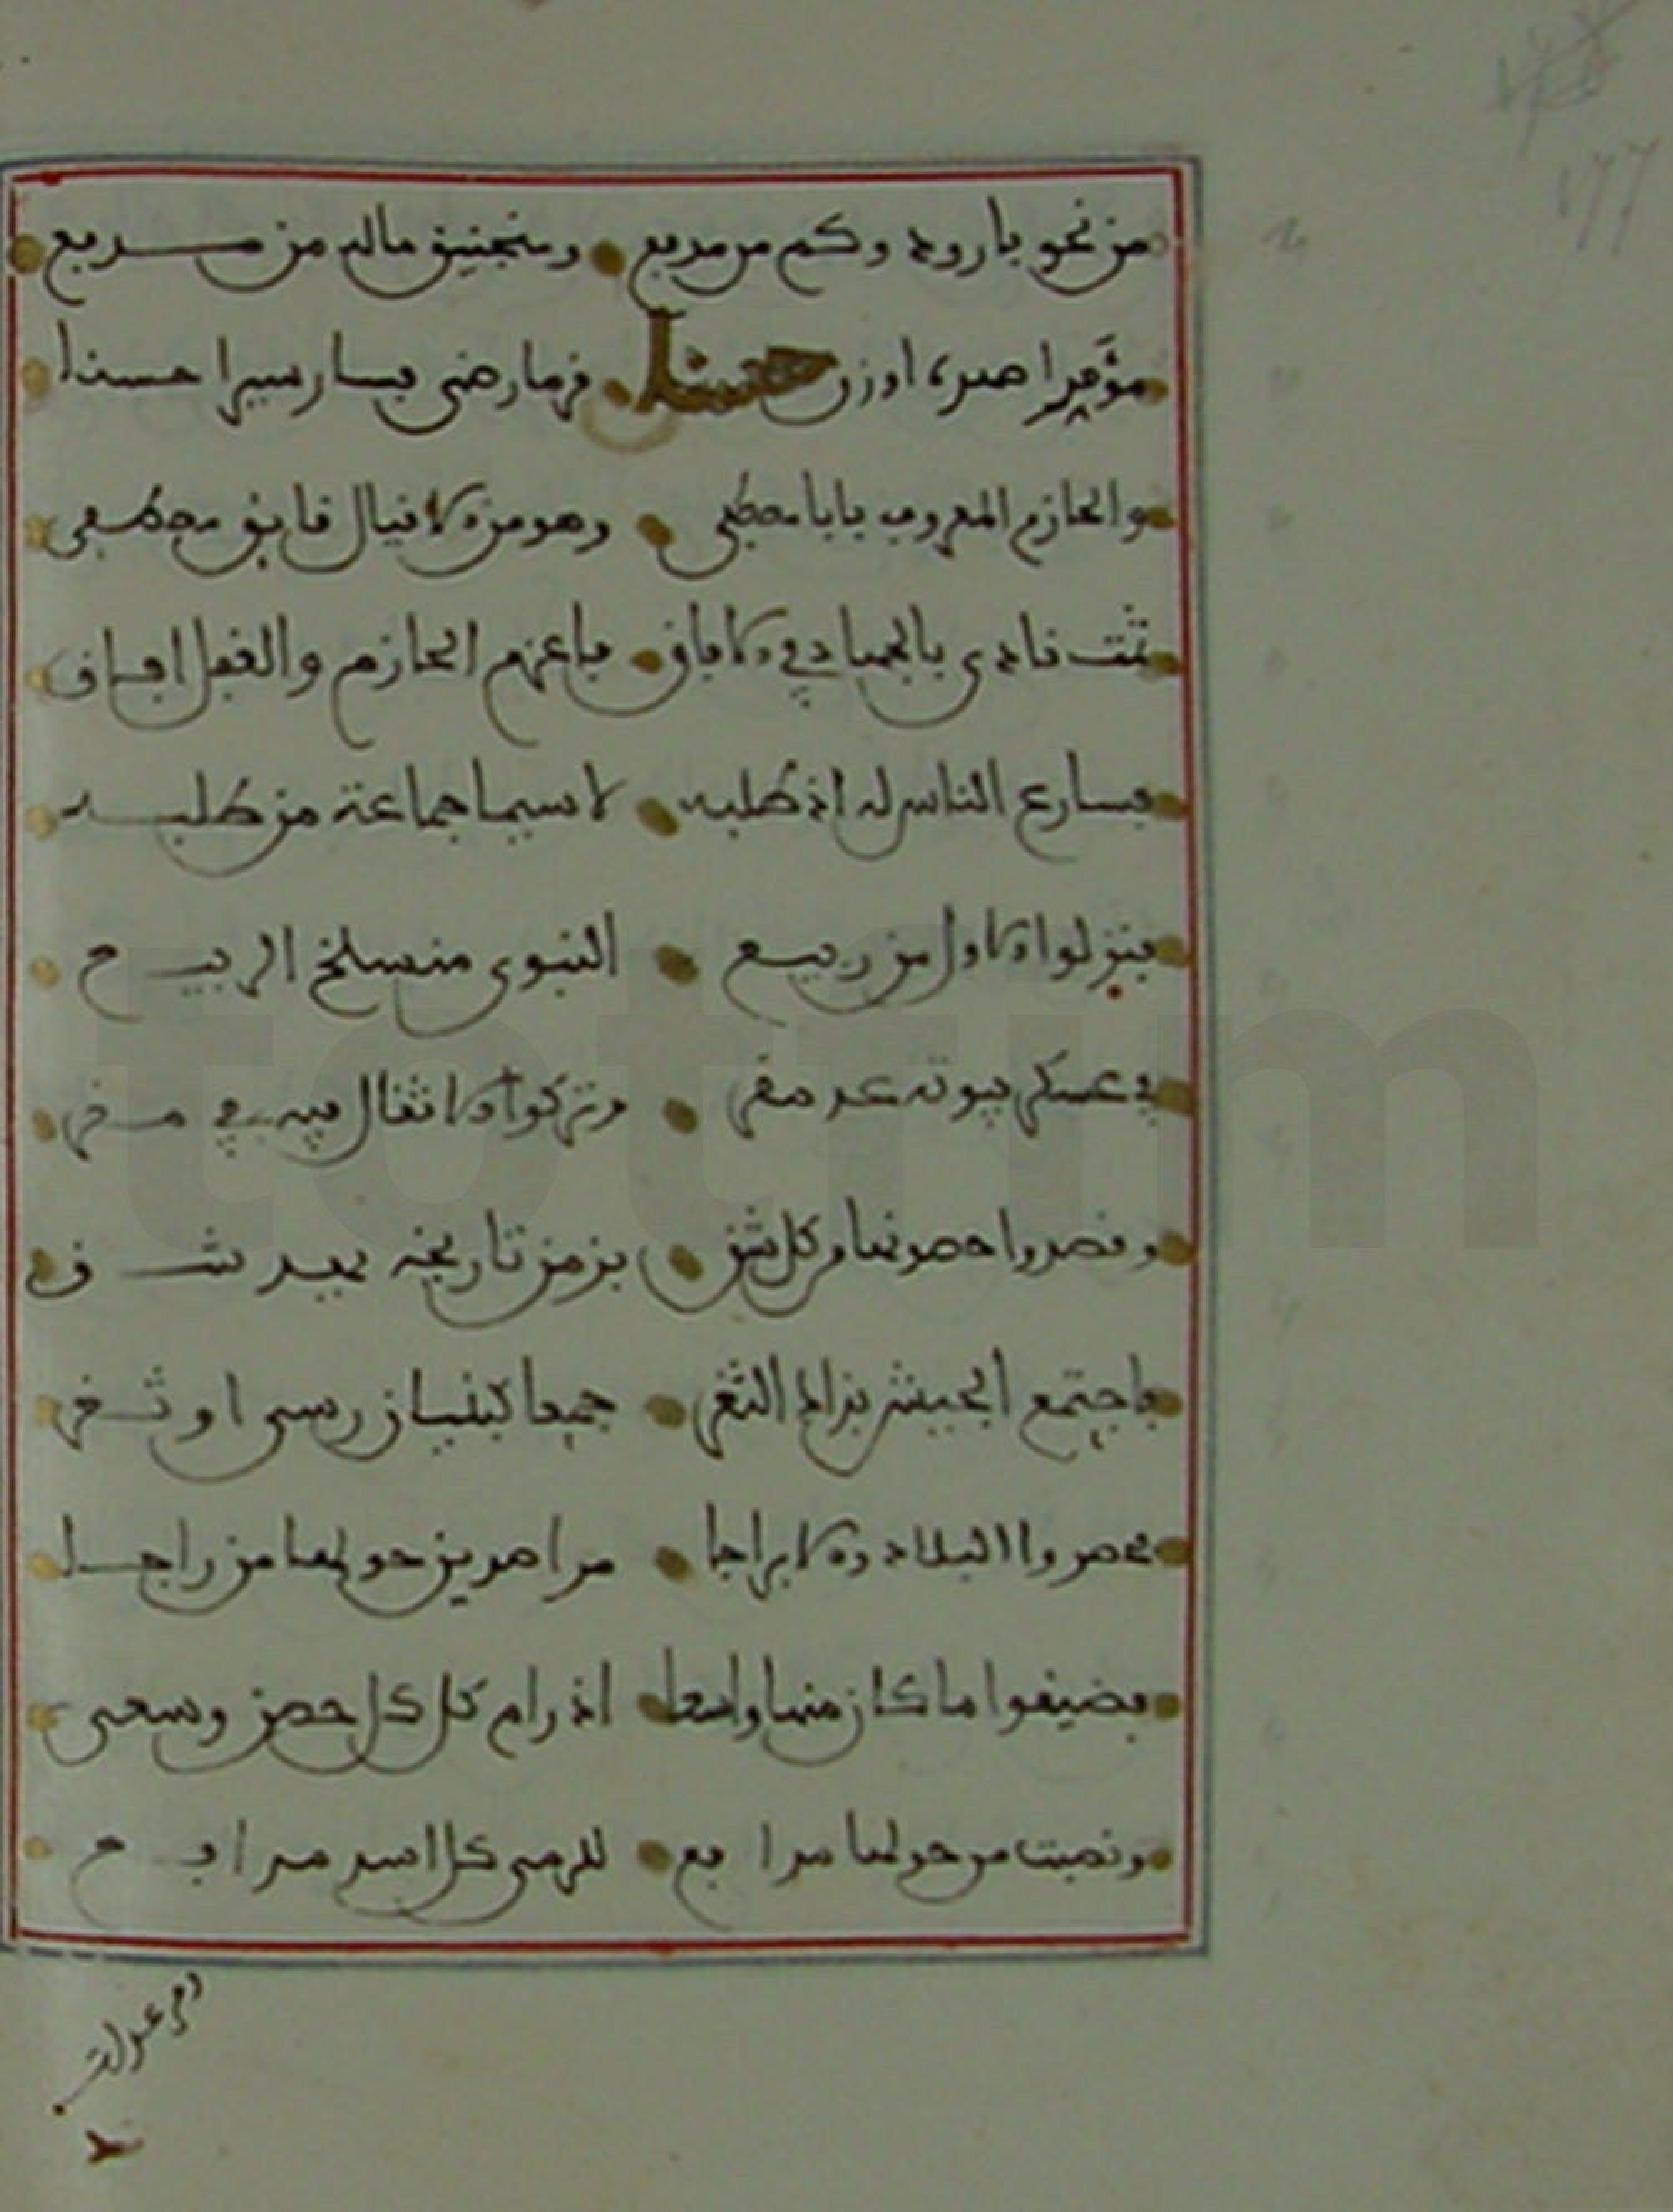 ١٦٦
من نحو بارود وكم من مدفع ومنجنيق ماله من مدفع
مؤمرا صهره اوزن حسنا فمارضى فسار سيرا حسنا
والحازم المعروف بابا مصطفى وهو من الاقيال قايق مصطفى
ثمت نادى بالجهاد في الافاق فاعزم الحازم والغفل افاق
فسارع الناس له اذ طلبه لا سيما جماعة من طلبه
فنزلوا الاول من ربيع النبوي منسلخ الربيع
في عسكر بيوته عد مقر وتركوا الاثقال فيه في مقر
وقصدوا حصونها من كل شق بزمن تاريخه بعيد شق
فاجتمع الجيش بذاك الثغر جمعا كبنيان رسى او ثغر
فحصروا البلاد والابراجا مراصدين حولها من راجا
فضيقوا ما كان منها واسعا اذ رام كل كل حصن وسعى
ونصبت من حولها مدافع للرمي كل اسد مدافع
totfim